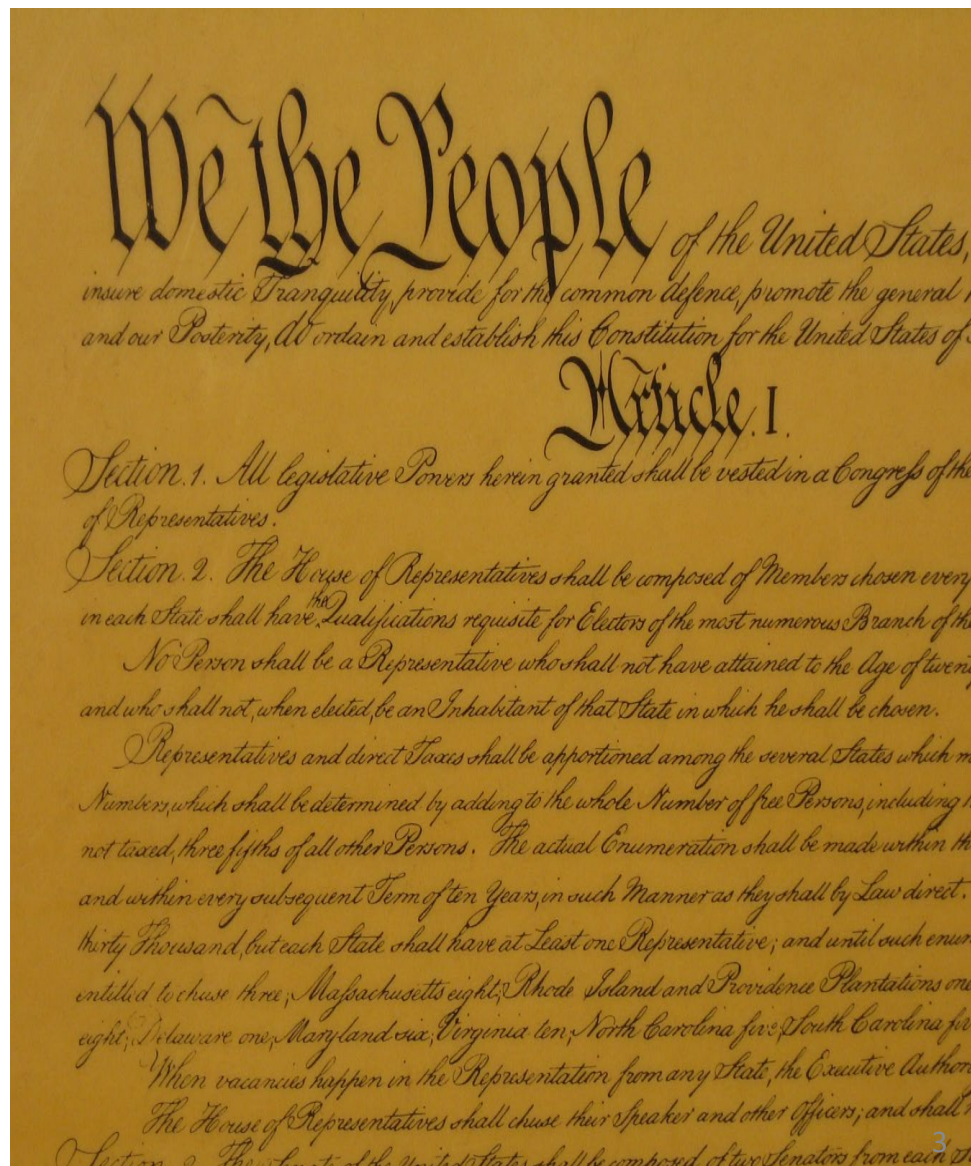 We the People of the United States,
insure domestic Tranquility, provide for the common defence, promote the general
and our Posterity, do ordain and establish this Constitution for the United States of
Article. I.
Section. 1. All legislative Powers herein granted shall be vested in a Congress of the
of Representatives.
Section. 2. The House of Representatives shall be composed of Members chosen every
in each State shall have the Qualifications requisite for Electors of the most numerous Branch of the
No Person shall be a Representative who shall not have attained to the Age of twen
and who shall not, when elected, be an Inhabitant of that State in which he shall be chosen.
Representatives and direct Taxes shall be apportioned among the several States which m
Numbers, which shall be determined by adding to the whole Number of free Persons, including
not taxed, three fifths of all other Persons. The actual Enumeration shall be made within th
and within every subsequent Term of ten Years, in such Manner as they shall by Law direct.
thirty Thousand, but each State shall have at Least one Representative; and until such enum
entitled to chuse three, Massachusetts eight, Rhode Island and Providence Plantations one
eight, Delaware one, Maryland six, Virginia ten, North Carolina five, South Carolina fiv
When vacancies happen in the Representation from any State, the Executive Author
The House of Representatives shall chuse their Speaker and other Officers; and shall
Section. The Senate of the United States shall be composed of two Senators from each
3